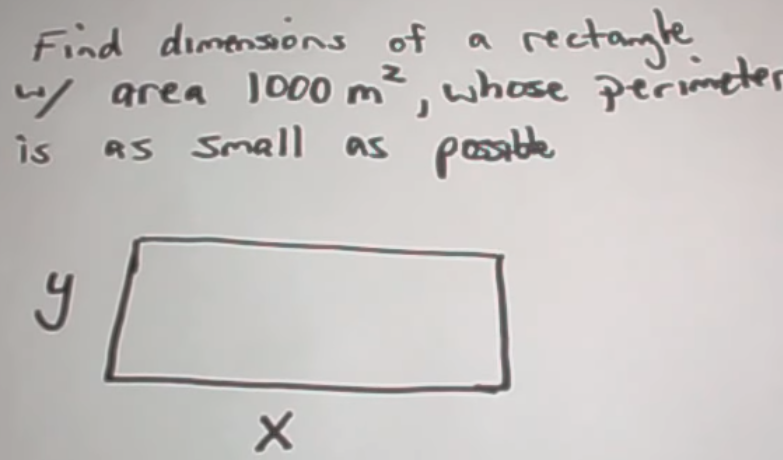 Find dimensions of a rectangle
w/ area 1000 m², whose perimeter
is as small as possible
y
x